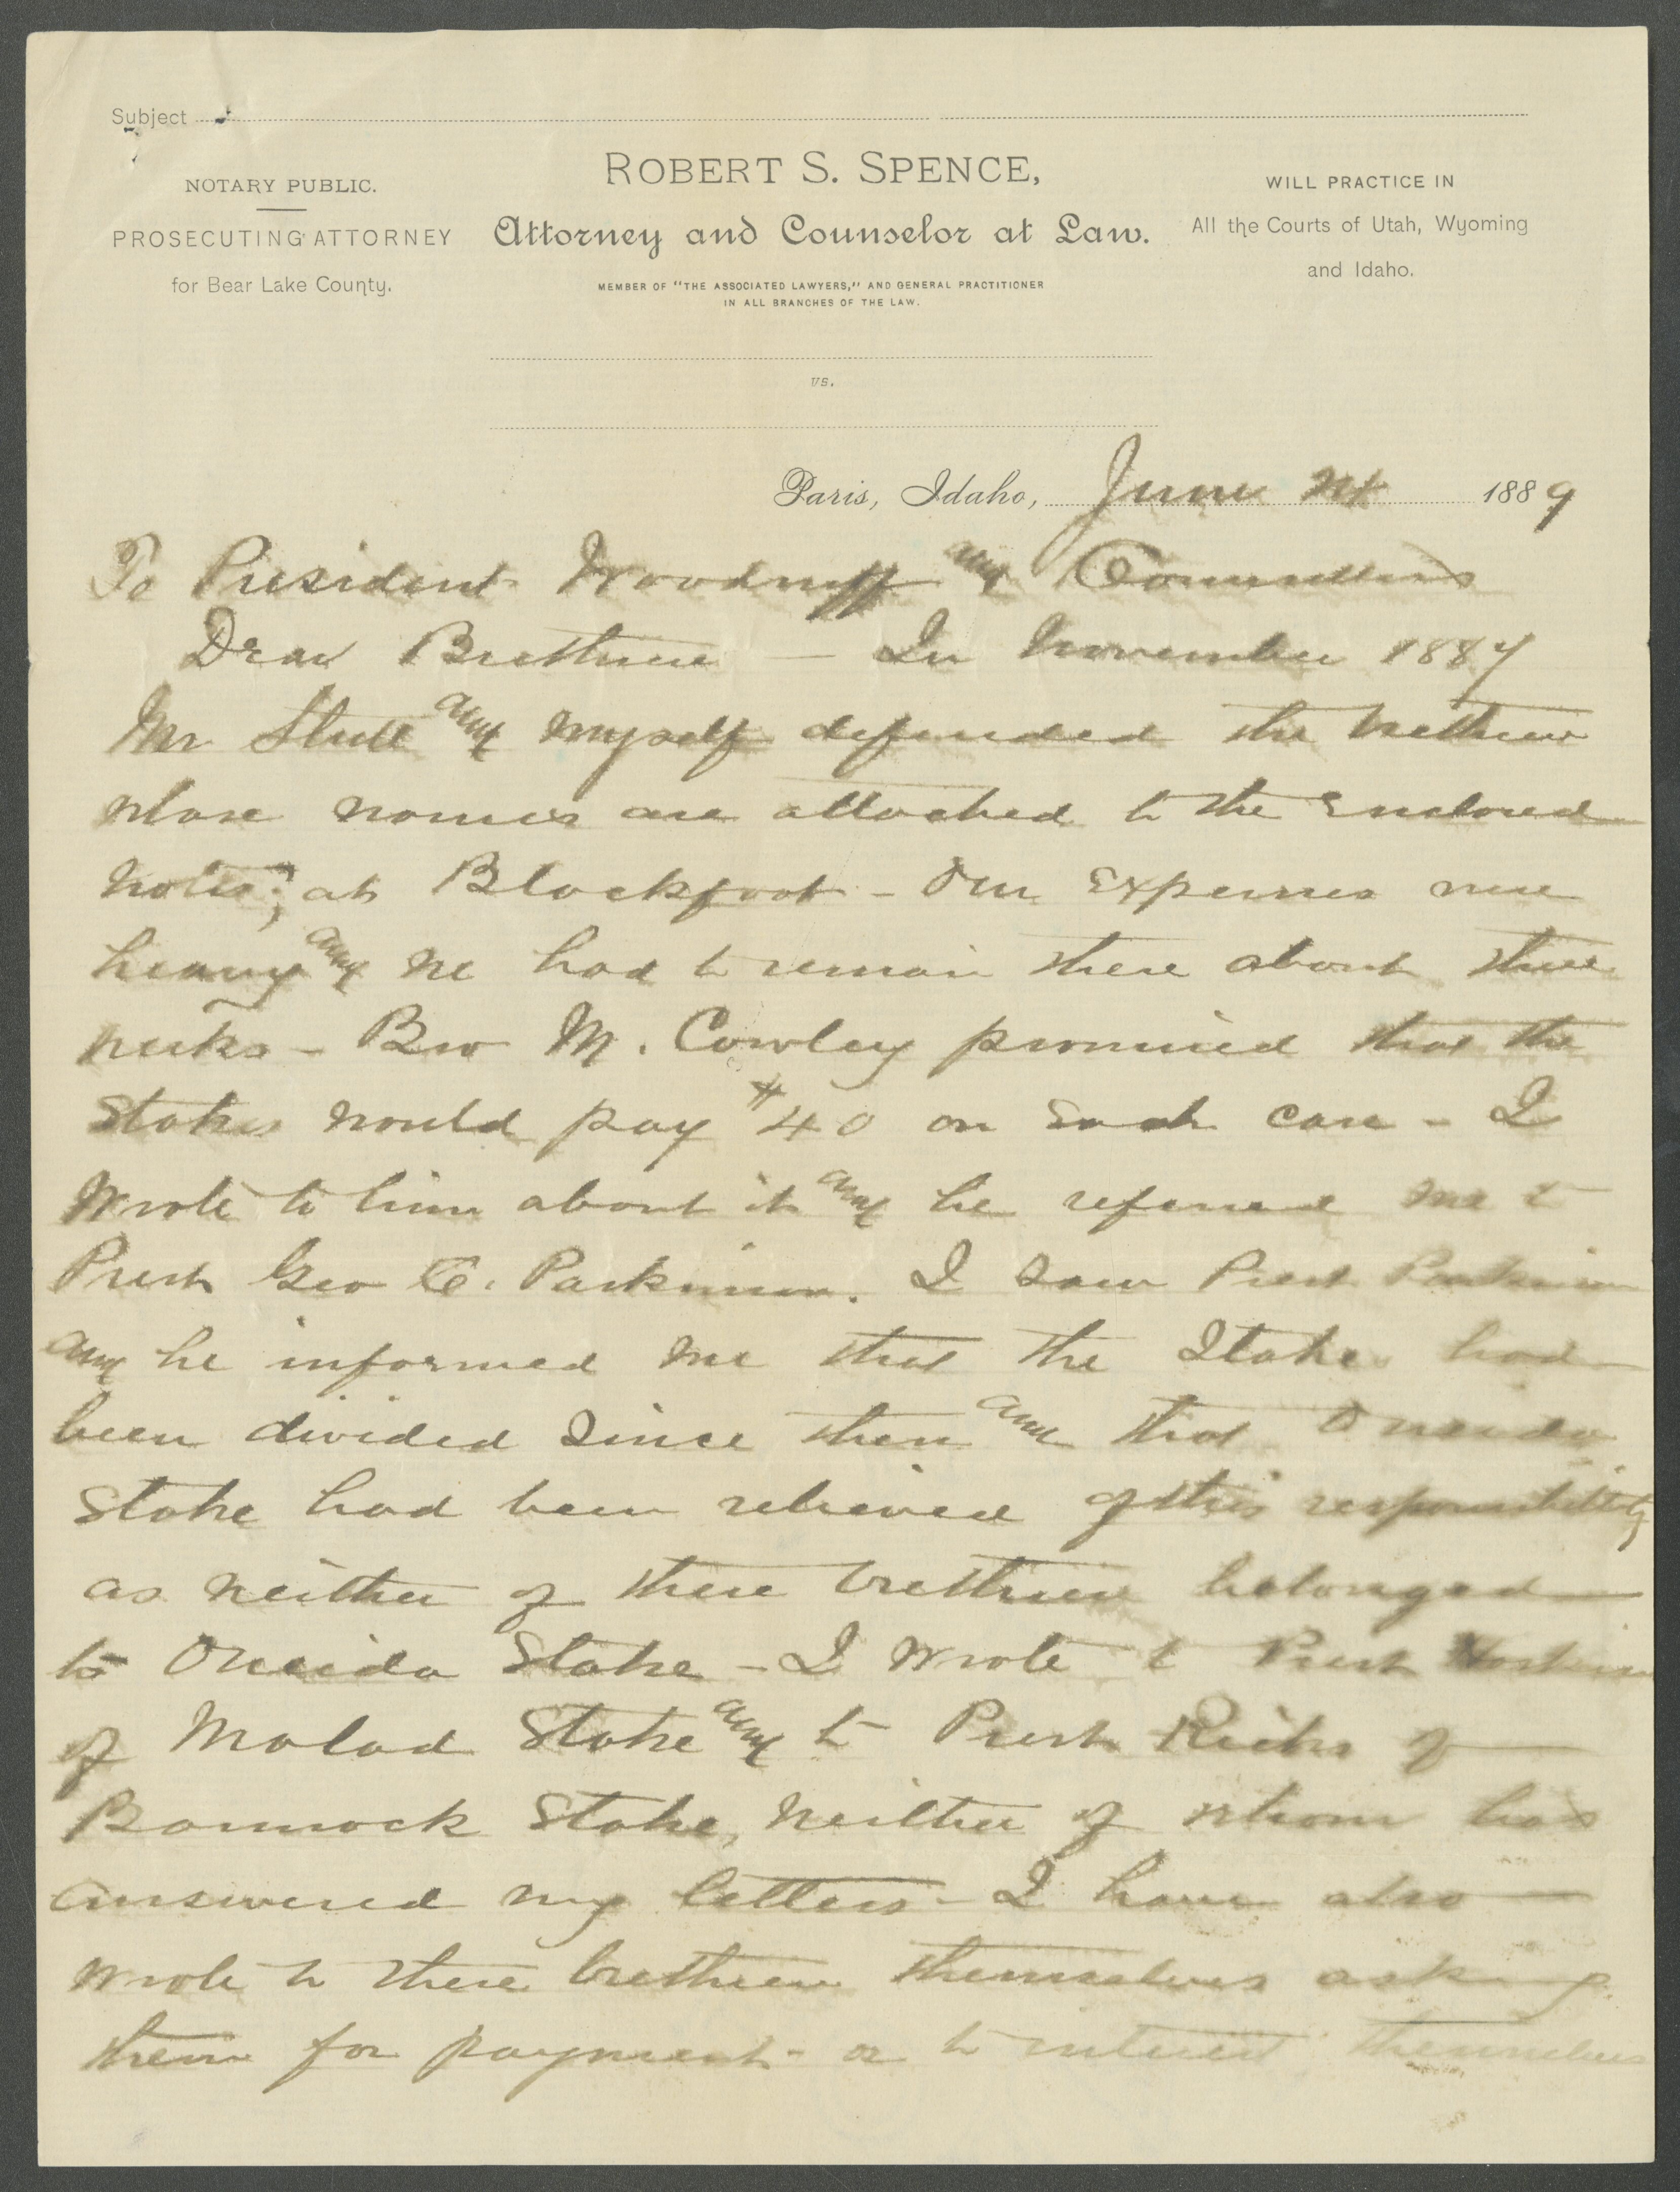 Subject
NOTARY PUBLIC.
PROSECUTING ATTORNEY
for Bear Lake County.
ROBERT S. SPENCE,
Attorney and Counselor at Law.
MEMBER OF "THE ASSOCIATED LAWYERS," AND GENERAL PRACTITIONER
IN ALL BRANCHES OF THE LAW.
WILL PRACTICE IN
All the Courts of Utah, Wyoming
and Idaho.
vs.
Paris, Idaho, June 24 1889
To President Woodruff and Counsellors
Dear Brethren — In November 1887
Mr Stull and myself defended the brethren
whose names are attached to the enclosed
notes, at Blackfoot - Our expenses were
heavy and we had to remain there about three
weeks - Bro M. Cowley promised that the
Stake would pay $40 on each case - I
wrote to him about it and he referred me to
Prest Geo C. Parkinson. I saw Prest Parkinson
and he informed me that the Stake had
been divided since then and that Oneida
Stake had been relieved of this responsibility
as neither of these brethren belonged
to Oneida Stake - I wrote to Prest Hoskins
of Malad Stake and to Prest Ricks of
Bannock Stake, neither of whom has
answered my letters - I have also
wrote to these brethren themselves asking
them for payment - or to interest themselves